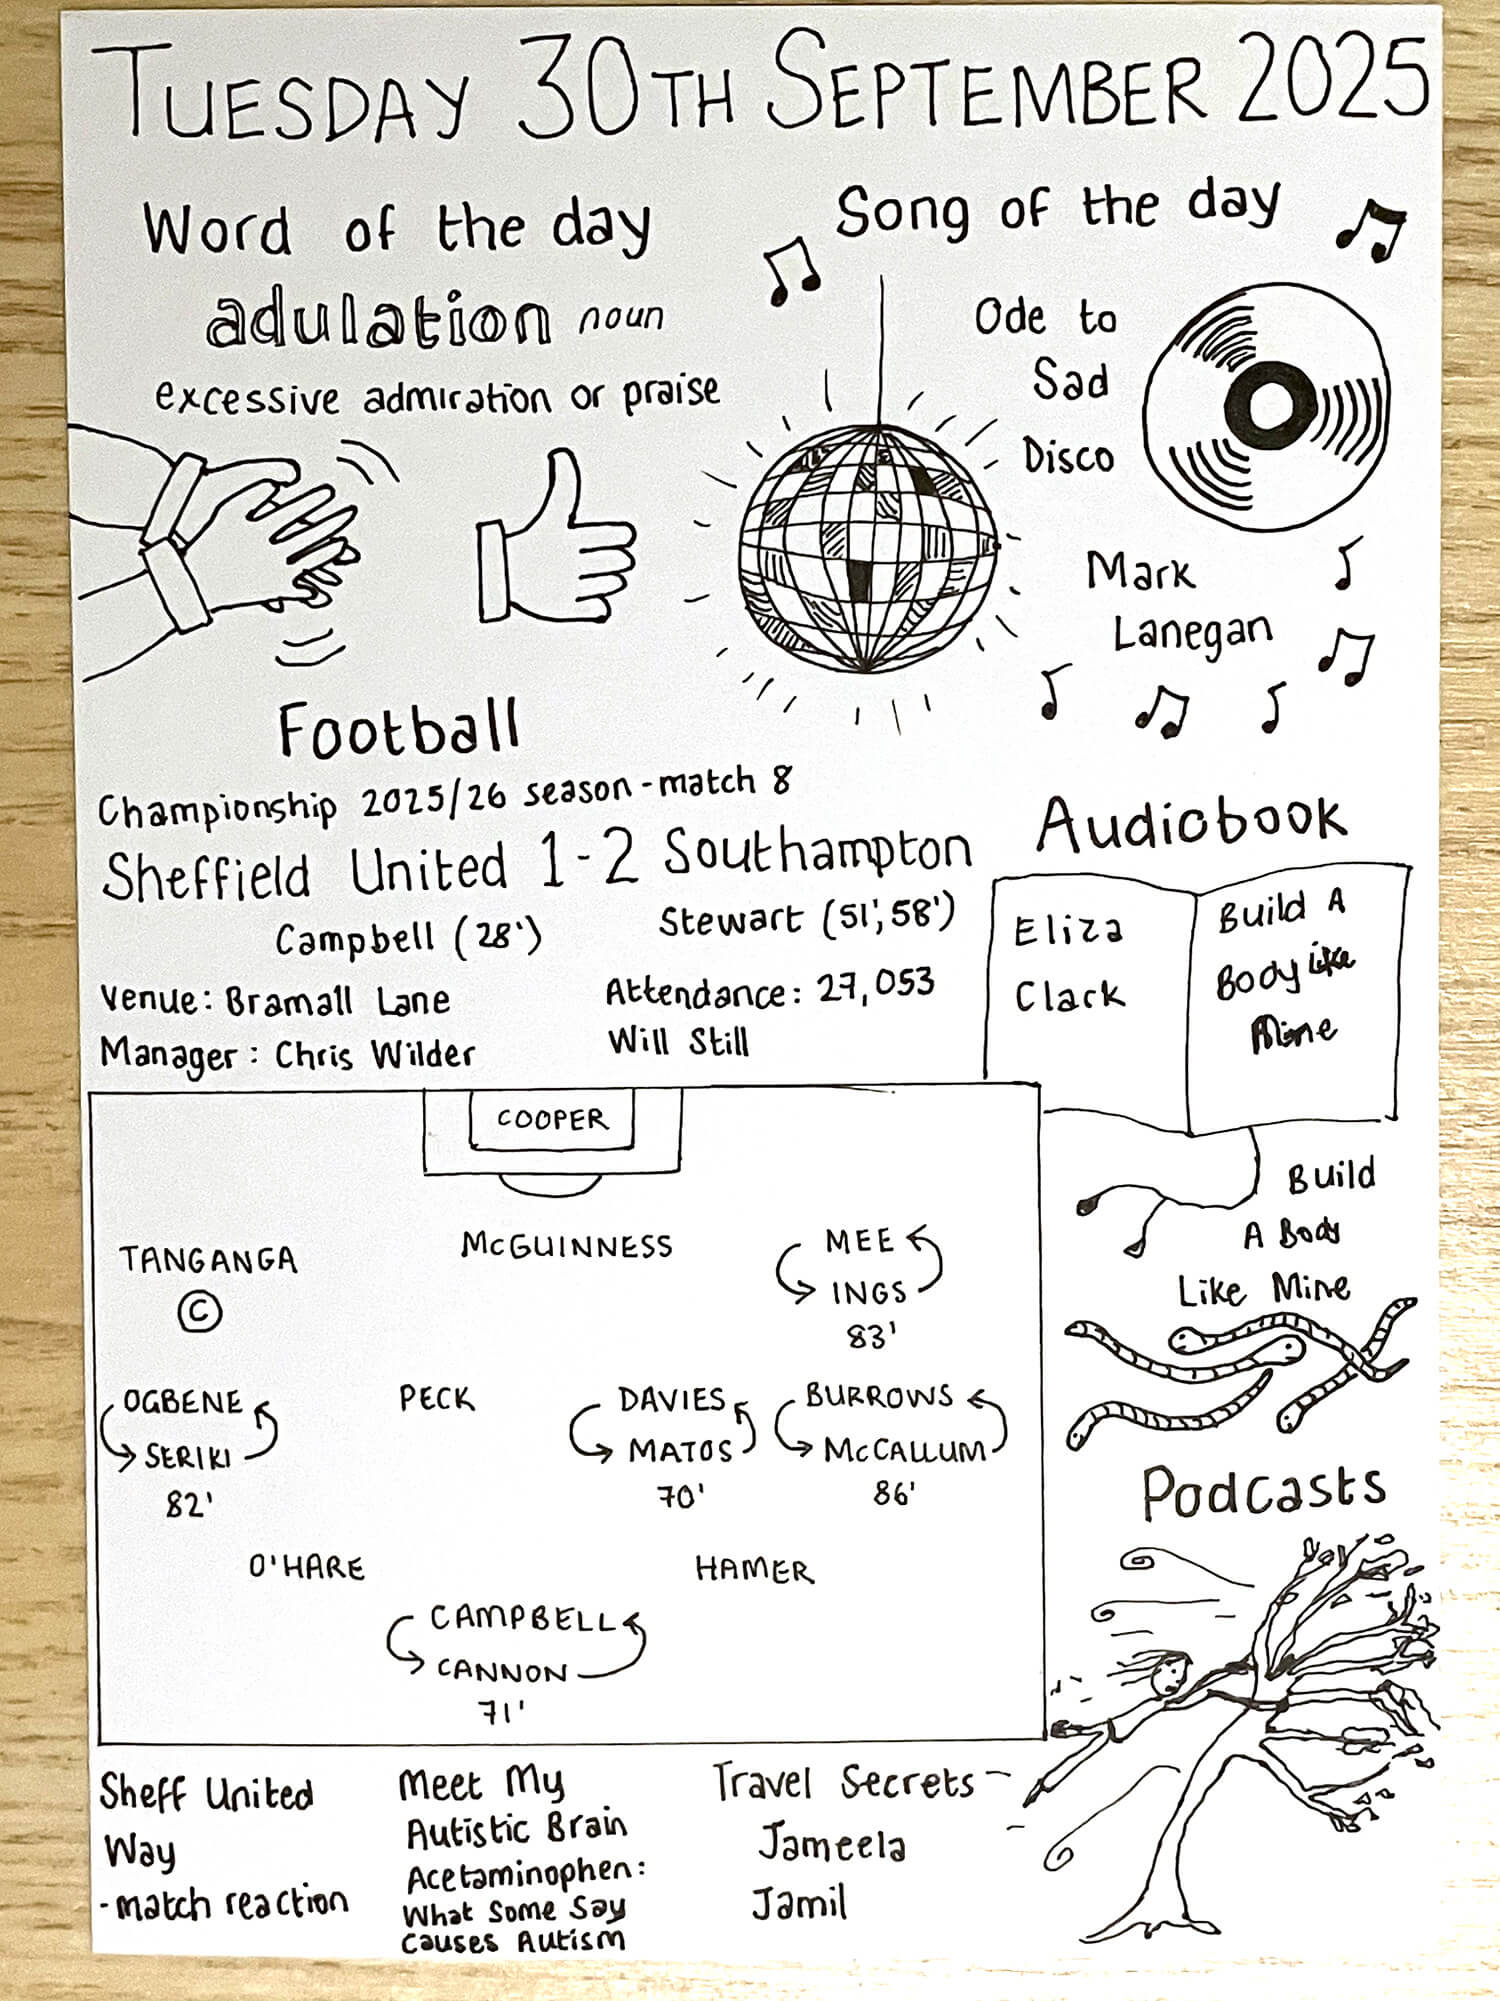 TUESDAY 30TH SEPTEMBER 2025
Word of the day
adulation noun
excessive admiration or praise
Song of the day
Ode to
Sad
Disco
Mark
Lanegan
Football
Championship 2025/26 season - match 8
Sheffield United 1-2 Southampton
Campbell (28') Stewart (51', 58')
Venue: Bramall Lane Attendance: 27,053
Manager: Chris Wilder Will Still
COOPER
TANGANGA McGUINNESS MEE
© INGS
83'
OGBENE PECK DAVIES BURROWS
SERIKI MATOS McCALLUM
82' 70' 86'
O'HARE HAMER
CAMPBELL
CANNON
71'
Audiobook
Eliza
Clark
Build A
Body Like
Mine
Build
A Body
Like Mine
Podcasts
Sheff United
Way
- match reaction
Meet My
Autistic Brain
Acetaminophen:
What Some Say
Causes Autism
Travel Secrets -
Jameela
Jamil